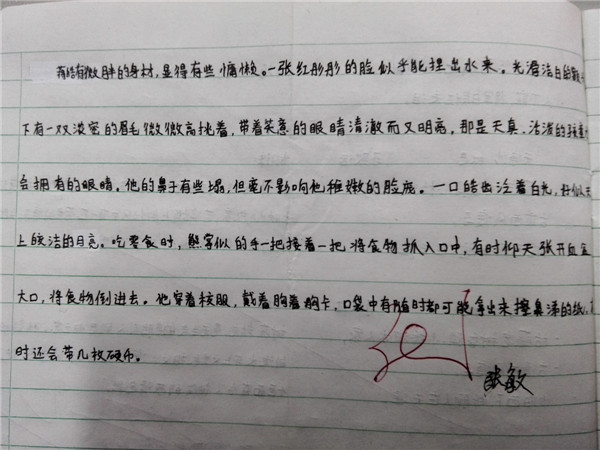 有微胖的身材，显得有些慵懒。一张红彤彤的脸似乎能捏出水来。光滑洁白的
下有一双浓密的眉毛微微高挑着，带着笑意的眼睛清澈而又明亮。那是天真、活泼的孩童
会拥有的眼睛。他的鼻子有些塌，但毫不影响他稚嫩的脸庞。一口皓齿泛着白光，好似天
上皎洁的月亮。吃零食时，熊掌似的手一把接着一把将食物抓入口中，有时仰天张开血盆
大口，将食物倒进去。他穿着校服，戴着胸着胸卡，口袋中有随时都可能拿出来擦鼻涕的纸，
时还会带几枚硬币。
张敏